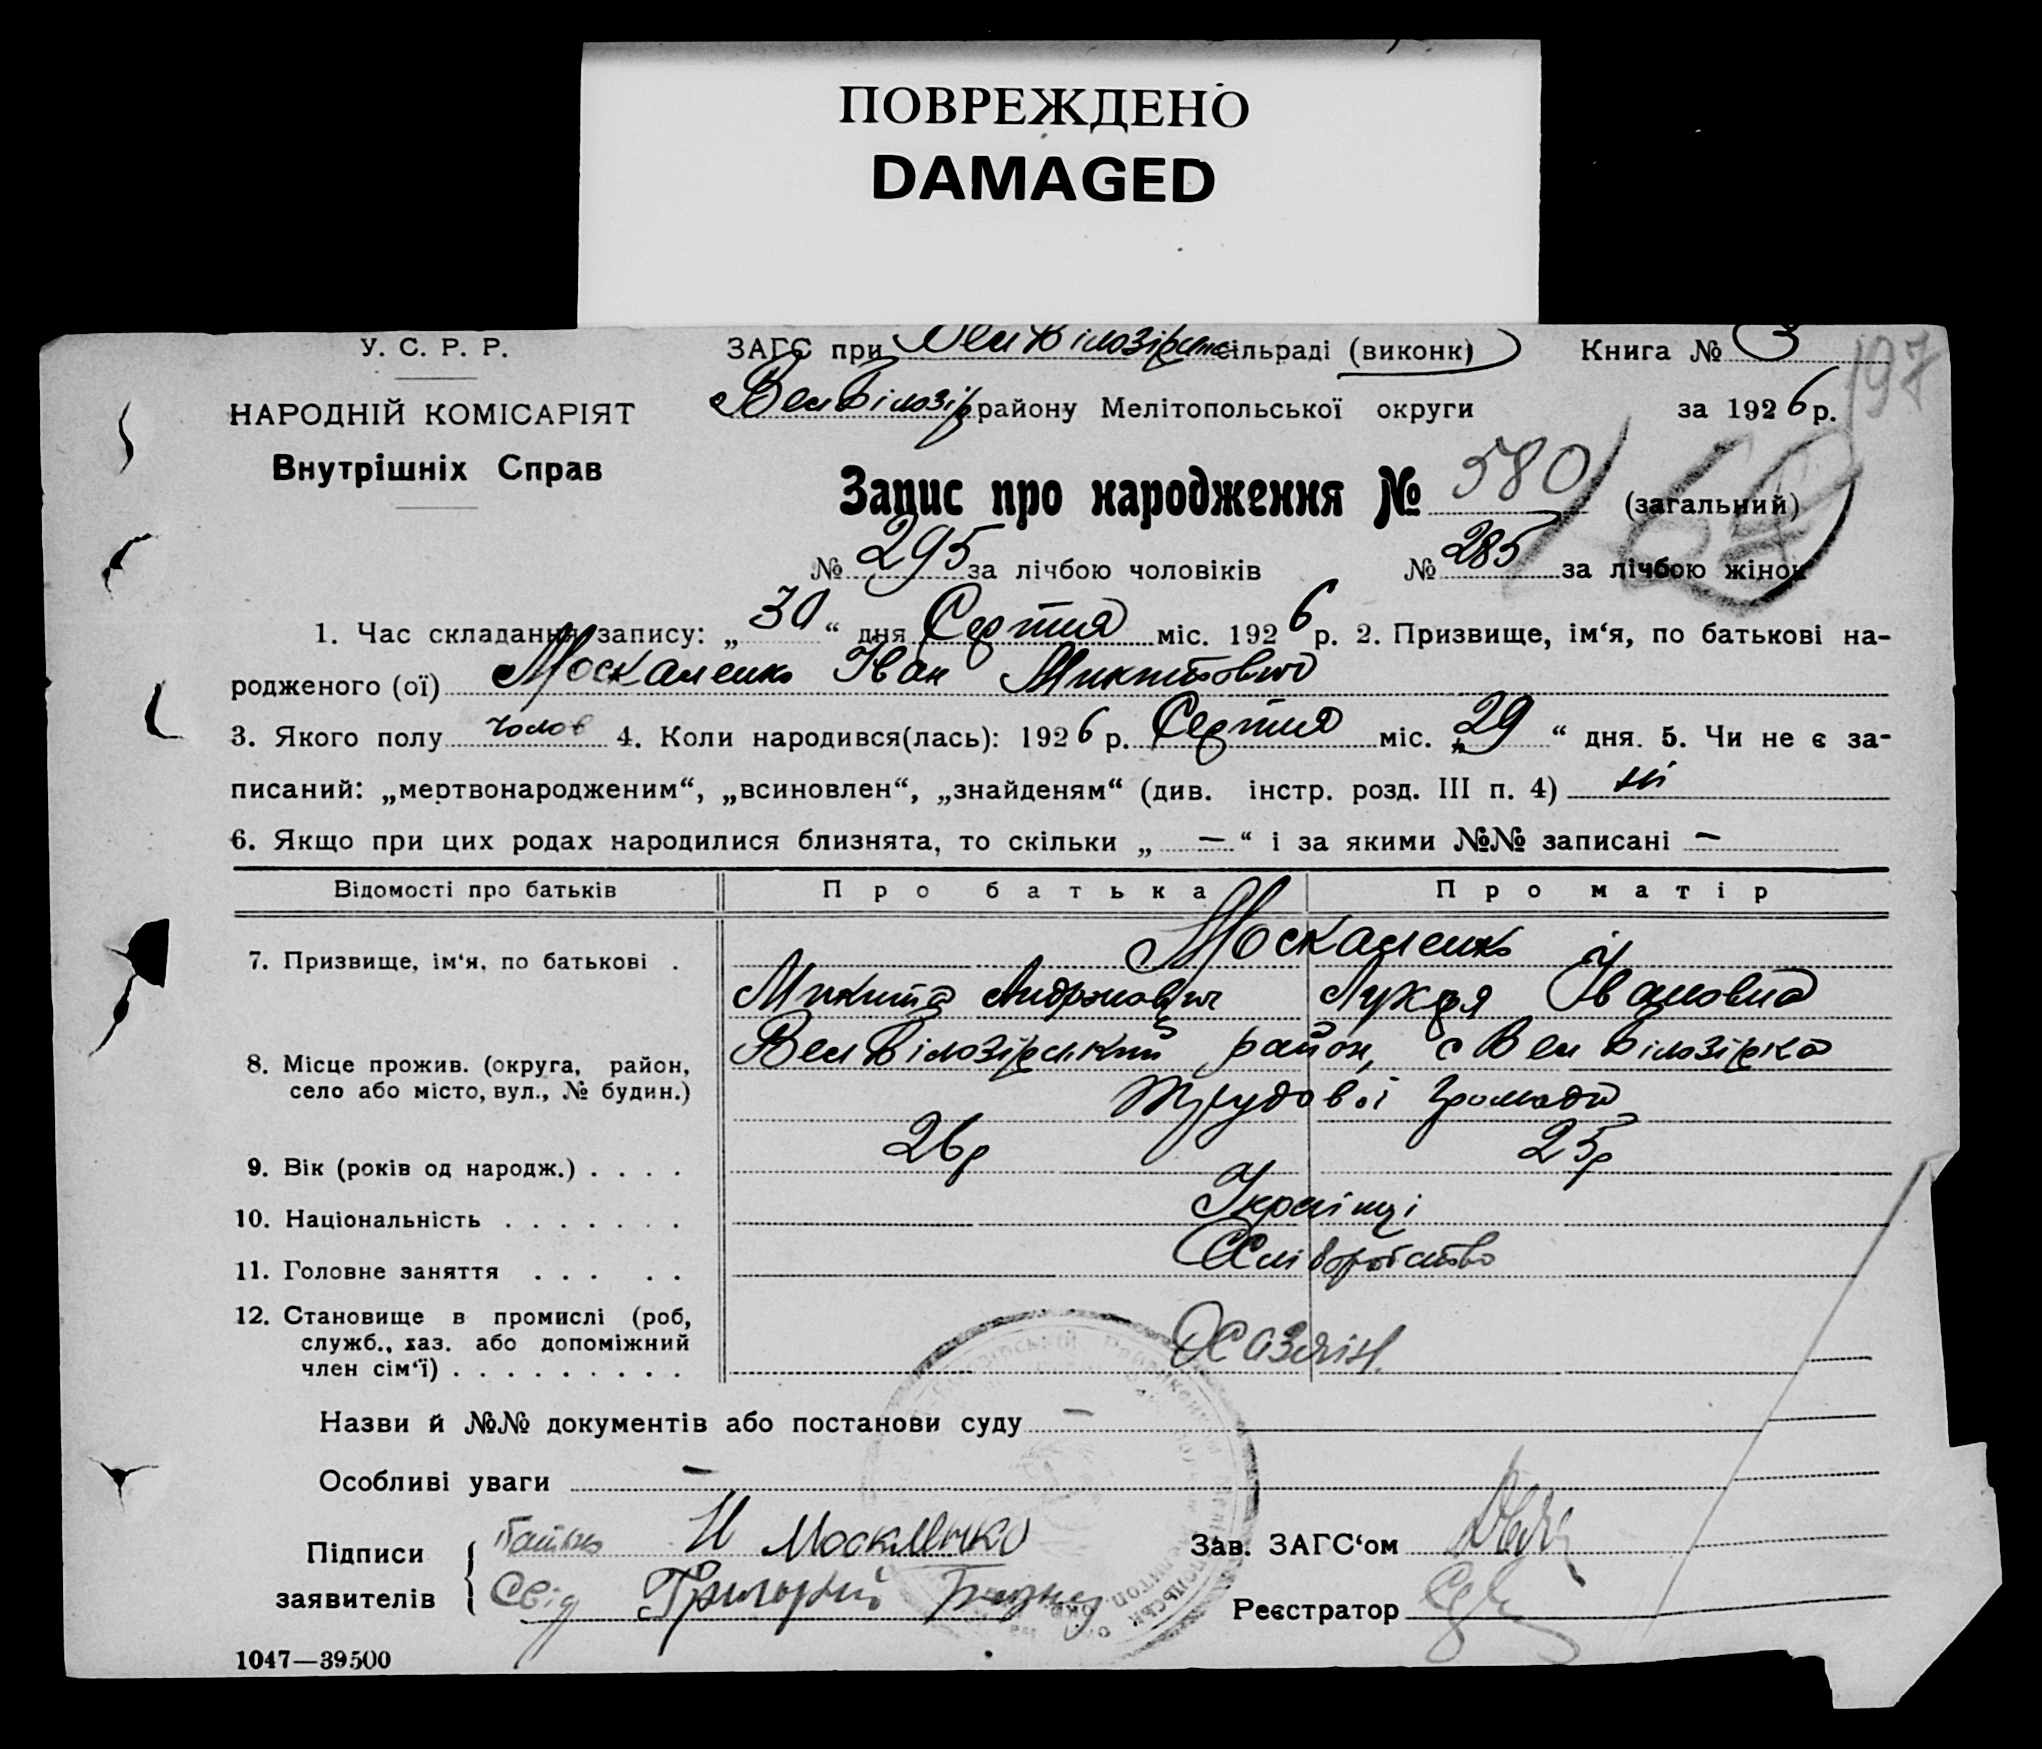 ПОВРЕЖДЕНО
DAMAGED
У. С. Р. Р.
НАРОДНІЙ КОМІСАРІЯТ
Внутрішніх Справ
ЗАГС при Вел Білозірськ сільраді (виконк) Книга № 3
197
Вел Білозір району Мелітопольської округи за 1926 р.
Запис про народження № 580 (загальний)
№ 295 за лічбою чоловіків № 285 за лічбою жінок
1. Час складання запису: „30“ дня Серпня міс. 1926 р. 2. Призвище, ім‘я, по батькові на-
родженого (ої) Москаленко Іван Микитович
3. Якого полу Чолов 4. Коли народився(лась): 1926 р. Серпня міс. „29“ дня. 5. Чи не є за-
писаний: „мертвонародженим“, „всиновлен“, „знайденям“ (див. інстр. розд. III п. 4) ні
6. Якщо при цих родах народилися близнята, то скільки „—“ і за якими №№ записані —
Відомості про батьків Про батька Про матір
7. Призвище, ім‘я, по батькові . Москаленко
Микита Андрієвич Лукія Івановна
8. Місце прожив. (округа, район, село або місто, вул., № будин.) Вел Білозірський район, с Вел Білозірка
Трудової Громади
9. Вік (років од народж.) . . . . 26 р 25 р
10. Національність . . . . . . . Українці
11. Головне заняття . . . . . Хліборобство
12. Становище в промислі (роб, служб., хаз. або допоміжний член сім‘ї) . . . . . . . . . Хазяїн
Назви й №№ документів або постанови суду —
Особливі уваги —
Підписи заявителів { Батько Н Москаленко
Свід Григорий
Зав. ЗАГС‘ом
Реєстратор
1047—39500